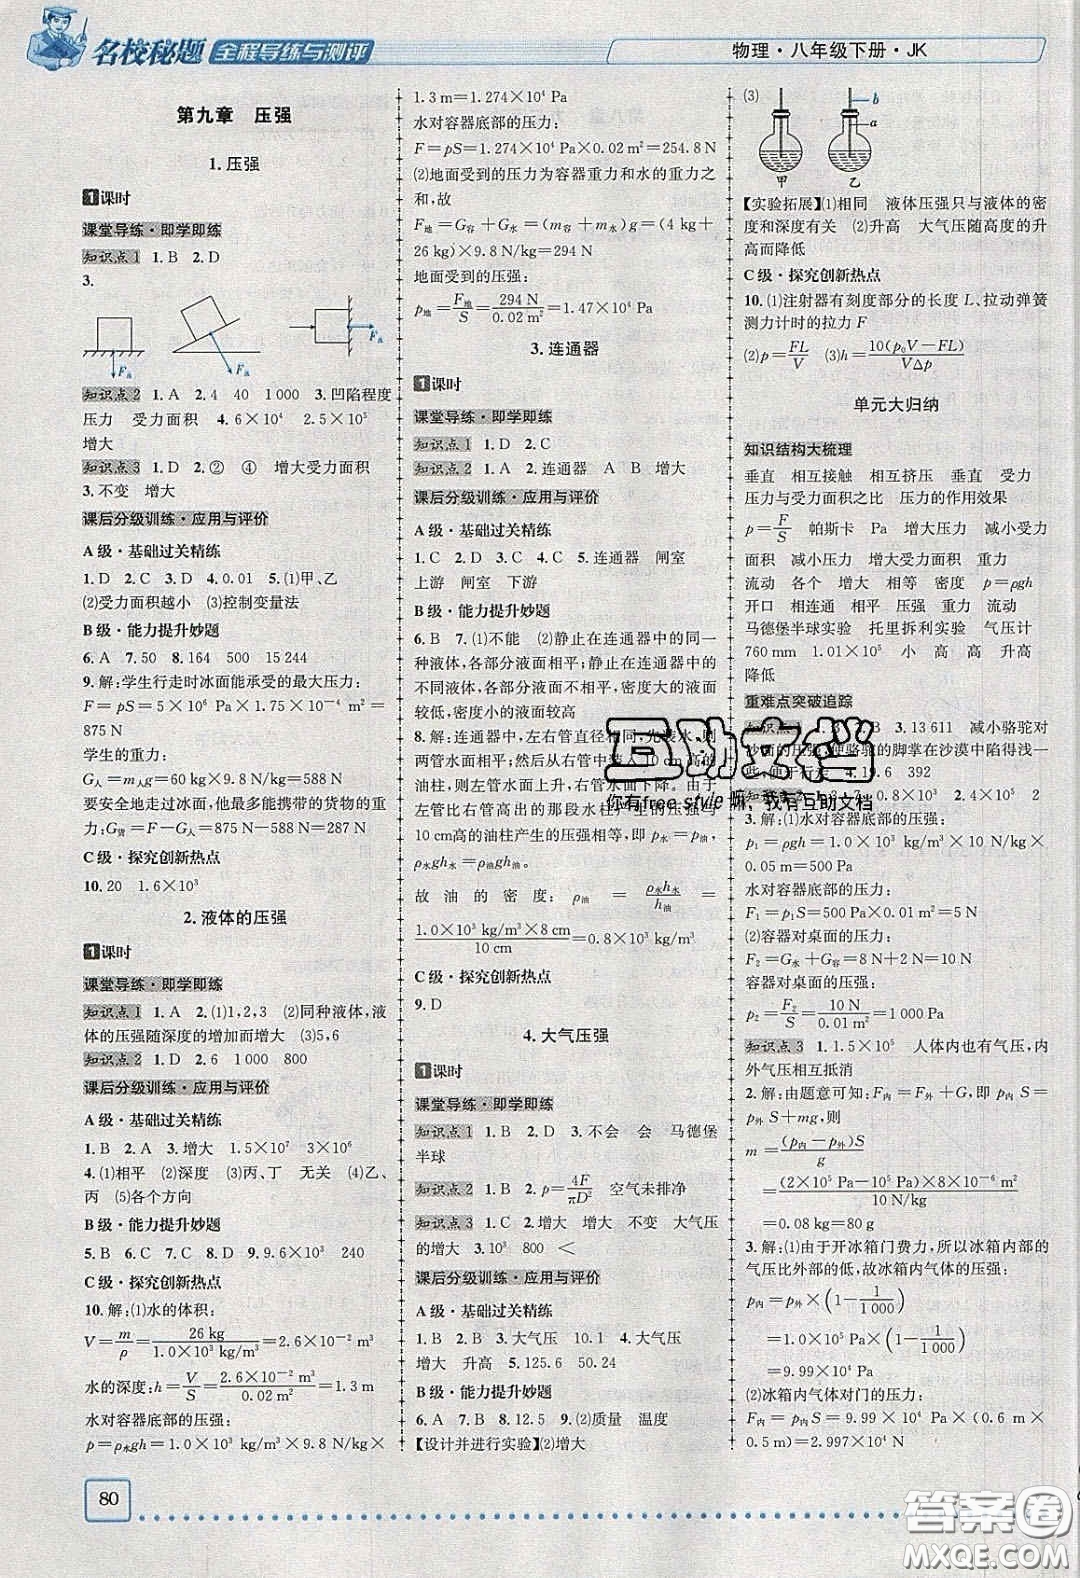 名校秘题 全程导练与测评
物理·八年级下册·JK
第九章 压强
1.压强
1课时
课堂导练·即学即练
知识点1 1.B 2.D
3.
F甲
知识点2 1.A 2.4 40 1 000 3.凹陷程度
压力 受力面积 4.6×10⁴ 2.5×10⁵
增大
知识点3 1.D 2.② ④ 增大受力面积
3.不变 增大
课后分级训练·应用与评价
A级·基础过关精练
1.D 2.C 3.D 4.0.01 5.(1)甲、乙
(2)受力面积越小 (3)控制变量法
B级·能力提升妙题
6.A 7.50 8.164 500 15 244
9.解:学生行走时冰面能承受的最大压力:
F=pS=5×10⁶ Pa×1.75×10⁻⁴ m²=
875 N
学生的重力:
G人=m人g=60 kg×9.8 N/kg=588 N
要安全地走过冰面,他最多能携带的货物的重
力:G货=F-G人=875 N-588 N=287 N
C级·探究创新热点
10.20 1.6×10³
2.液体的压强
1课时
课堂导练·即学即练
知识点1 1.A 2.(1)1,2,3 (2)同种液体,液
体的压强随深度的增加而增大 (3)5,6
知识点2 1.D 2.6 1 000 800
课后分级训练·应用与评价
A级·基础过关精练
1.B 2.A 3.增大 1.5×10⁷ 3×10⁶
4.(1)相平 (2)深度 (3)丙、丁 无关 (4)乙、
丙 (5)各个方向
B级·能力提升妙题
5.B 6.C 7.C 8.D 9.9.6×10³ 240
C级·探究创新热点
10.解:(1)水的体积:
V=m/ρ=26 kg/1.0×10³ kg/m³=2.6×10⁻² m³
水的深度:h=V/S=2.6×10⁻² m³/0.02 m²=1.3 m
水对容器底部的压强:
p=ρ水gh=1.0×10³ kg/m³×9.8 N/kg×
1.3 m=1.274×10⁴ Pa
水对容器底部的压力:
F=pS=1.274×10⁴ Pa×0.02 m²=254.8 N
(2)地面受到的压力为容器重力和水的重力之
和,故
F地=G容+G水=(m容+m水)g=(4 kg+
26 kg)×9.8 N/kg=294 N
地面受到的压强:
p地=F地/S=294 N/0.02 m²=1.47×10⁴ Pa
3.连通器
1课时
课堂导练·即学即练
知识点1 1.D 2.C
知识点2 1.A 2.连通器 A B 增大
课后分级训练·应用与评价
A级·基础过关精练
1.C 2.D 3.C 4.C 5.连通器 闸室
上游 闸室 下游
B级·能力提升妙题
6.B 7.(1)不能 (2)静止在连通器中的同一
种液体,各部分液面相平;静止在连通器中的
不同液体,各部分液面不相平,密度大的液面
较低,密度小的液面较高
8.解:连通器中,左右管直径相同,先装水,则
两管水面相平,当从右管中装入10 cm高的
油柱,则左管水面上升,右管水面下降。由于
左管比右管高出的那段水柱产生的压强与
10 cm高的油柱产生的压强相等,即 p水=p油,
ρ水gh水=ρ油gh油。
故油的密度:ρ油=ρ水h水/h油=
1.0×10³ kg/m³×8 cm/10 cm=0.8×10³ kg/m³
C级·探究创新热点
9.D
4.大气压强
1课时
课堂导练·即学即练
知识点1 1.B 2.D 3.不会 会 马德堡
半球
知识点2 1.B 2.p=4F/πD² 空气未排净
知识点3 1.C 2.增大 增大 不变 大气压
的增大 3.10³ 800 <
课后分级训练·应用与评价
A级·基础过关精练
1.B 2.B 3.大气压 10.1 4.大气压
增大 升高 5.125.6 50.24
B级·能力提升妙题
6.A 7.B 8.12.5 9.(2)质量 温度
【设计并进行实验】(2)增大
(3)
b
a
甲 乙
【实验拓展】(1)相同 液体压强只与液体的密
度和深度有关 (2)升高 大气压随高度的升
高而降低
C级·探究创新热点
10.(1)注射器有刻度部分的长度 L、拉动弹簧
测力计时的拉力 F
(2)p=FL/V (3)h=10(p₀V-FL)/VΔp
单元大归纳
知识结构大梳理
垂直 相互接触 相互挤压 垂直 受力
压力与受力面积之比 压力的作用效果
p=F/S 帕斯卡 Pa 增大压力 减小受力
面积 减小压力 增大受力面积 重力
流动 各个 增大 相等 密度 p=ρgh
开口 相连通 相平 压强 重力 流动
马德堡半球实验 托里拆利实验 气压计
760 mm 1.01×10⁵ 小 高 高 升高
降低
重难点突破追踪
3.13 611 减小骆驼对
沙面的压强,使骆驼的脚掌在沙漠中陷得浅一
些,便于行走 4.19.6 392
0.8×10³ 2.4×10⁵
3.解:(1)水对容器底部的压强:
p₁=ρgh=1.0×10³ kg/m³×10 N/kg×
0.05 m=500 Pa
水对容器底部的压力:
F₁=p₁S=500 Pa×0.01 m²=5 N
(2)容器对桌面的压力:
F₂=G水+G容=8 N+2 N=10 N
容器对桌面的压强:
p₂=F₂/S=10 N/0.01 m²=1 000 Pa
知识点3 1.1.5×10⁵ 人体内也有气压,内
外气压相互抵消
2.解:由题意可知:F内=F外+G,即 p内S=
p外S+mg,则
m=(p内-p外)S/g
=(2×10⁵ Pa-10⁵ Pa)×8×10⁻⁶ m²/10 N/kg
=0.08 kg=80 g
3.解:(1)由于开冰箱门费力,所以冰箱内部的
气压比外部的低,故冰箱内气体的压强:
p内=p外×(1-1/1 000)
=1.0×10⁵ Pa×(1-1/1 000)
=9.99×10⁴ Pa
(2)冰箱内气体对门的压力:
F内=p内S=9.99×10⁴ Pa×(0.6 m×
0.5 m)=2.997×10⁴ N
互助文档
你有free style嘛,我有互助文档
80
答案圈
MXQE.COM